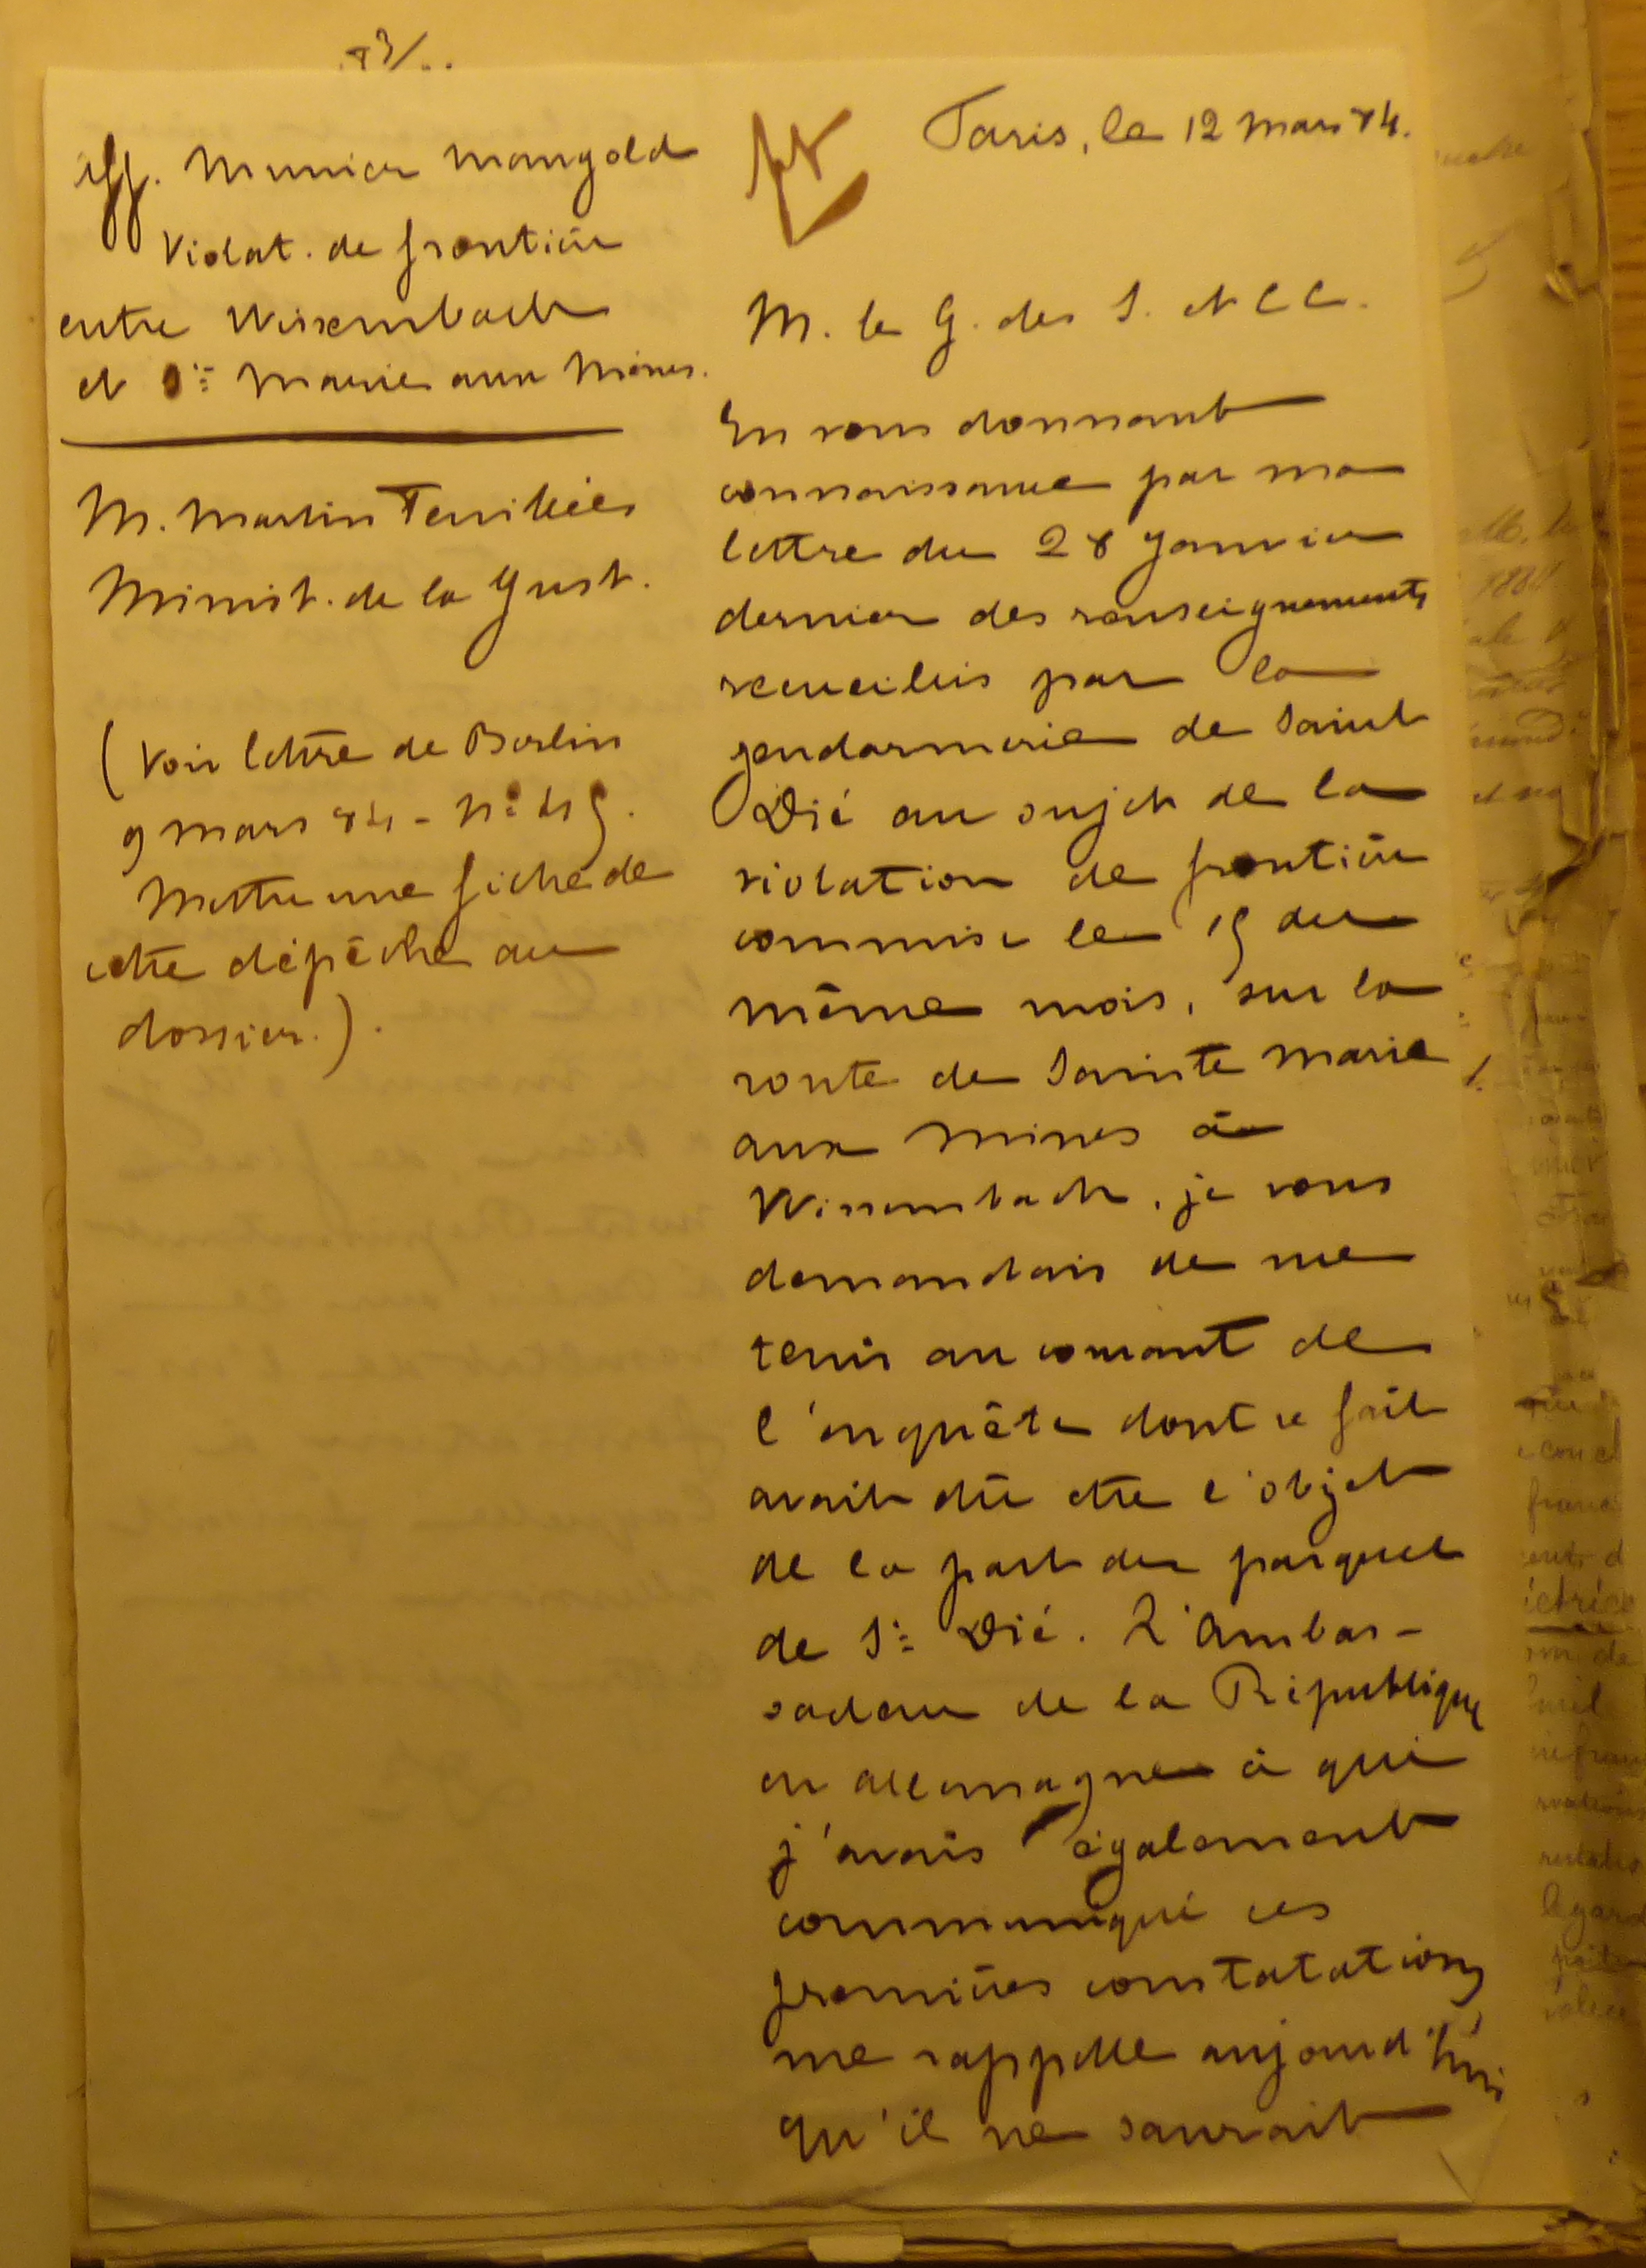 aff. Munier Mangold
Violat. de frontière
entre Wissembach
et Ste Marie aux Mines.
M. Martin Feuillée
Minist. de la Just.
(Voir lettre de Berlin
9 mars 84 - N° 45.
Mettre une fiche de
cette dépêche au
dossier.).
Paris, le 12 mars 84.
M. le G. des S. et C C.
En vous donnant
connaissance par ma
lettre du 28 Janvier
dernier des renseignements
recueillis par la
gendarmerie de Saint
Dié au sujet de la
violation de frontière
commise le 15 du
même mois, sur la
route de Sainte Marie
aux Mines à
Wissembach, je vous
demandais de me
tenir au courant de
l'enquête dont ce fait
avait dû être l'objet
de la part du parquet
de St Dié. L'Ambas-
sadeur de la République
en Allemagne à qui
j'avais également
communiqué ces
premières constatations
me rappelle aujourd'hui
qu'il ne saurait